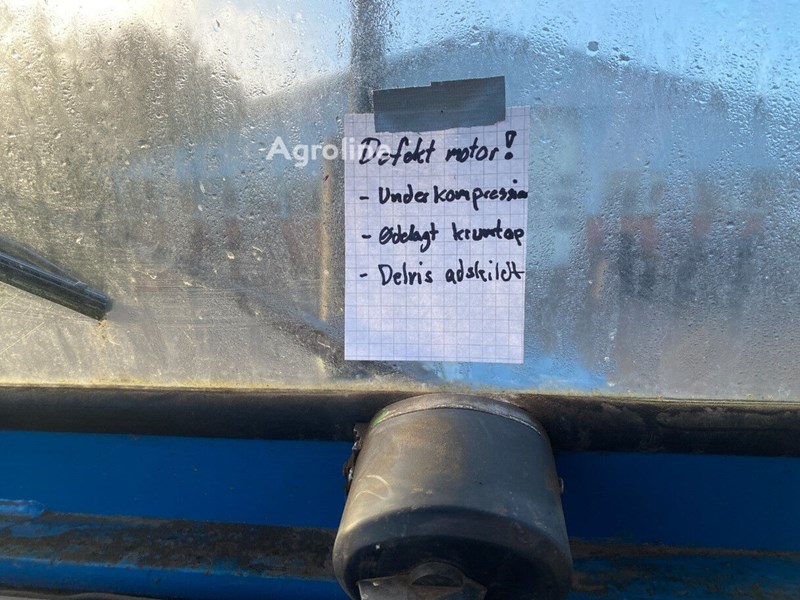 Agroline
Defekt motor!
- Underkompression
- Ødelagt krumtap
- Delvis adskildt